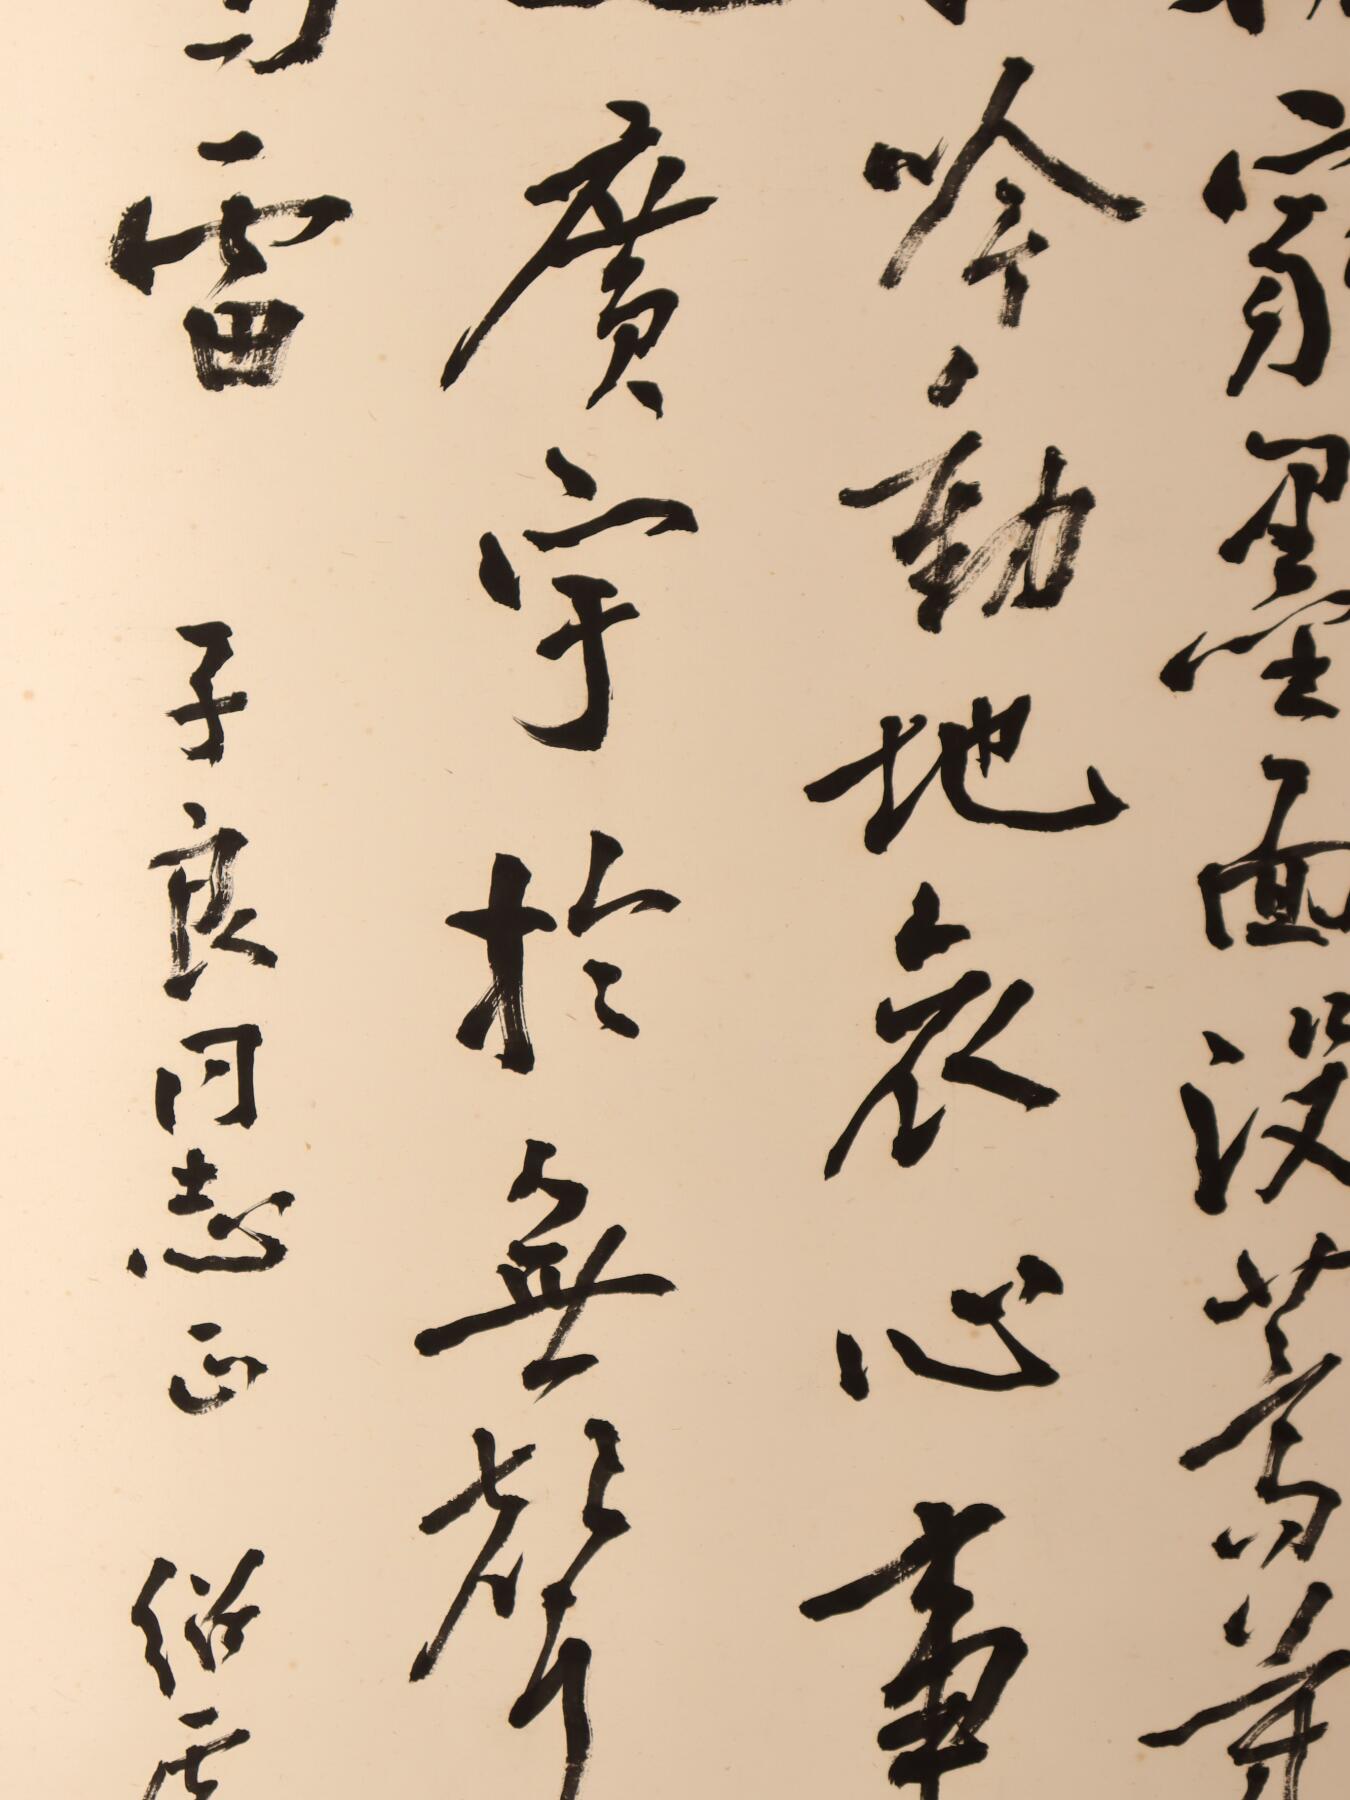 家墨面没蒿莱
吟動地哀心事
廣宇於無聲
雷
子良同志正